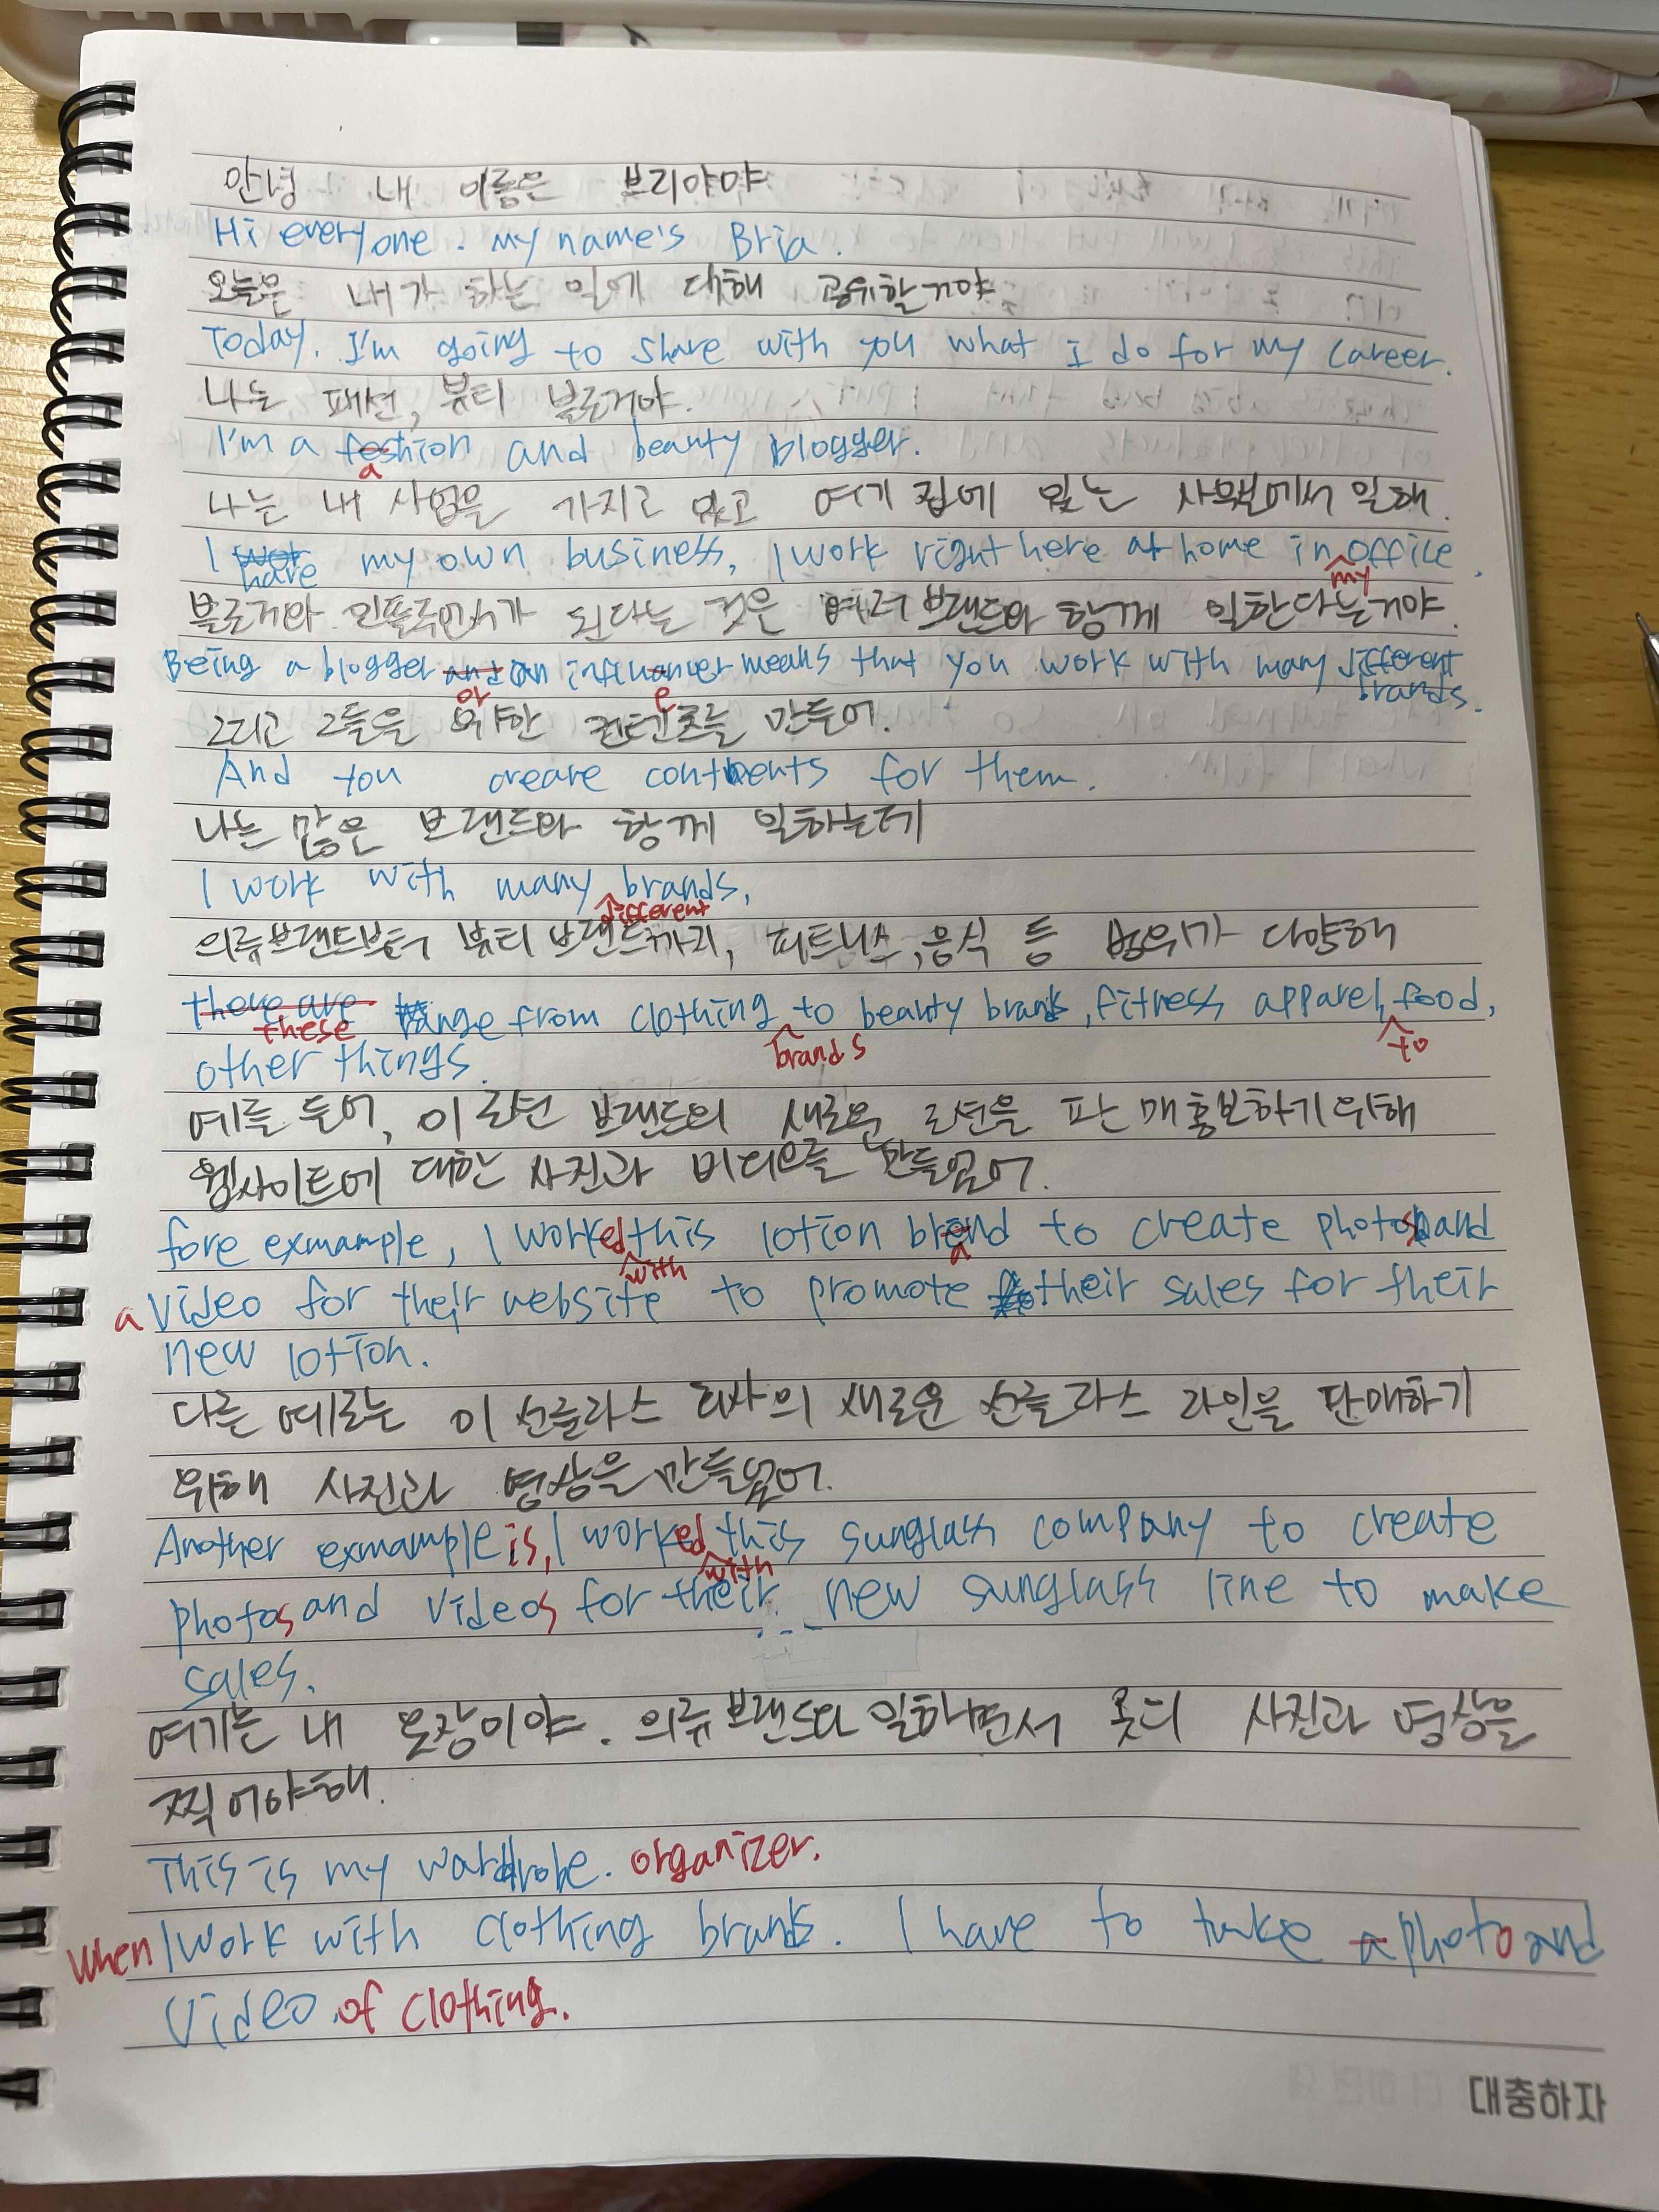 안녕 내 이름은 브리아야
Hi everyone. my name's Bria.
오늘은 내가 하는 일에 대해 공유할거야
Today. I'm going to share with you what I do for my career.
나는 패션, 뷰티 블로거야.
I'm a feshion and beauty blogger.
a
나는 내 사업을 가지고 있고 여기 집에 있는 사무실에서 일해.
I have my own business, I work right here at home in office.
my
블로거와 인플루언서가 된다는 것은 여러 브랜드와 함께 일한다는거야.
Being a blogger and an influancer means that you work with many different
or e brands.
그리고 그들을 위한 컨텐츠를 만들어.
And you creare contents for them.
나는 많은 브랜드와 함께 일하는데
I work with many brands,
different
의류브랜드부터 뷰티 브랜드까지, 피트니스, 음식 등 범위가 다양해
there are range from clothing to beauty brands, fitness apparel, food,
these brands to
other things.
예를 들어, 이 로션 브랜드의 새로운 로션을 판매홍보하기위해
웹사이트에 대한 사진과 비디오를 만들었어.
fore exmample, I worked this lotion brend to create photos and
with a
a video for their website to promote their sales for their
new lotion.
다른 예로는 이 선글라스 회사의 새로운 선글라스 라인을 판매하기
위해 사진과 영상을 만들었어.
Another exmample is, I worked this sunglass company to create
with
photos and videos for their new sunglass line to make
sales.
여기는 내 옷장이야. 의류브랜드와 일하면서 옷의 사진과 영상을
찍어야해.
This is my wardrobe. organizer.
When I work with clothing brands. I have to take a photo and
video of clothing.
대충하자